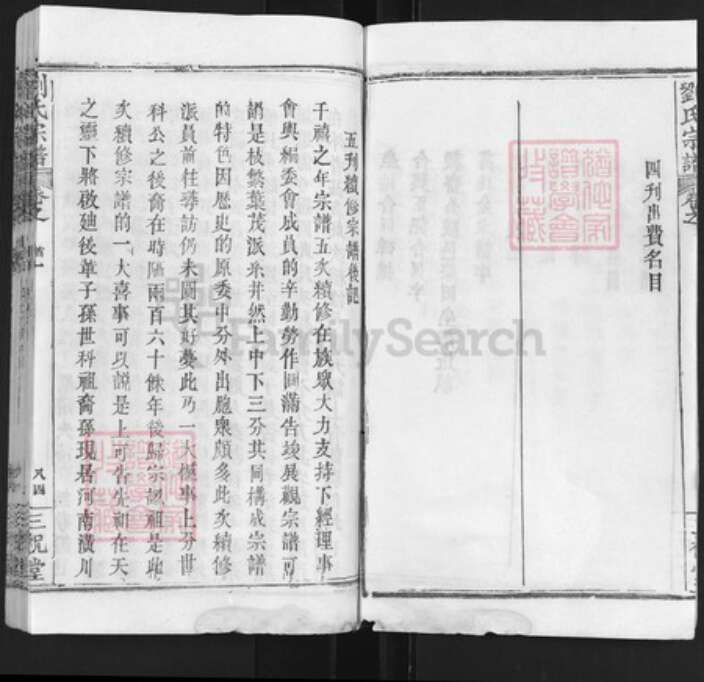 劉氏宗譜
四刋出費名目
五刋續修宗譜後記
千禧之年宗譜五次續修在族眾大力支持下經理事
會與編委會成員的辛勤勞作圓滿告竣展觀宗譜可
謂是枝繁葉茂派系井然上中下三分共同構成宗譜
的特色因歷史的原委中分外出胞衆頗多此次續修
派員前往尋訪仍未圓其好夢此乃一大憾事上分世
科公之後裔在時隔兩百六十餘年後歸宗認祖是此
次續修宗譜的一大喜事可以說是上可告先祖在天
之靈下將啟廸後輩子孫世科祖裔孫現居河南潢川
劉氏宗譜
三祝堂
FamilySearch